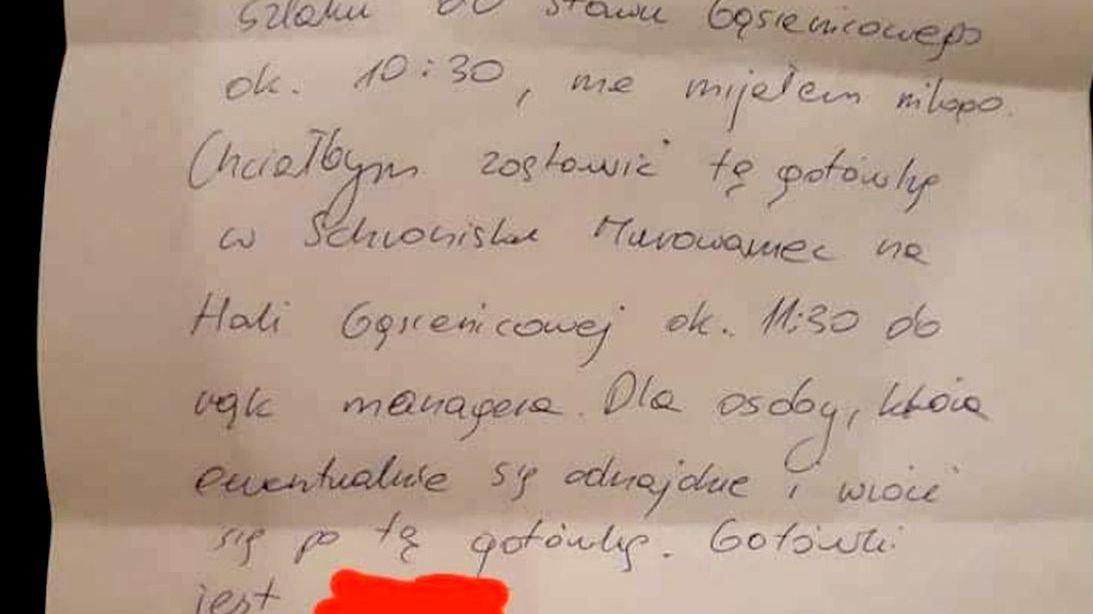 szlaku do stawu Gąsienicowego
ok. 10:30, nie mijałem nikogo.
Chciałbym zostawić tę gotówkę
w Schronisku Murowaniec na
Hali Gąsienicowej ok. 11:30 do
rąk managera. Dla osoby, która
ewentualnie się odnajdzie i wróci
się po tą gotówkę. Gotówki
jest